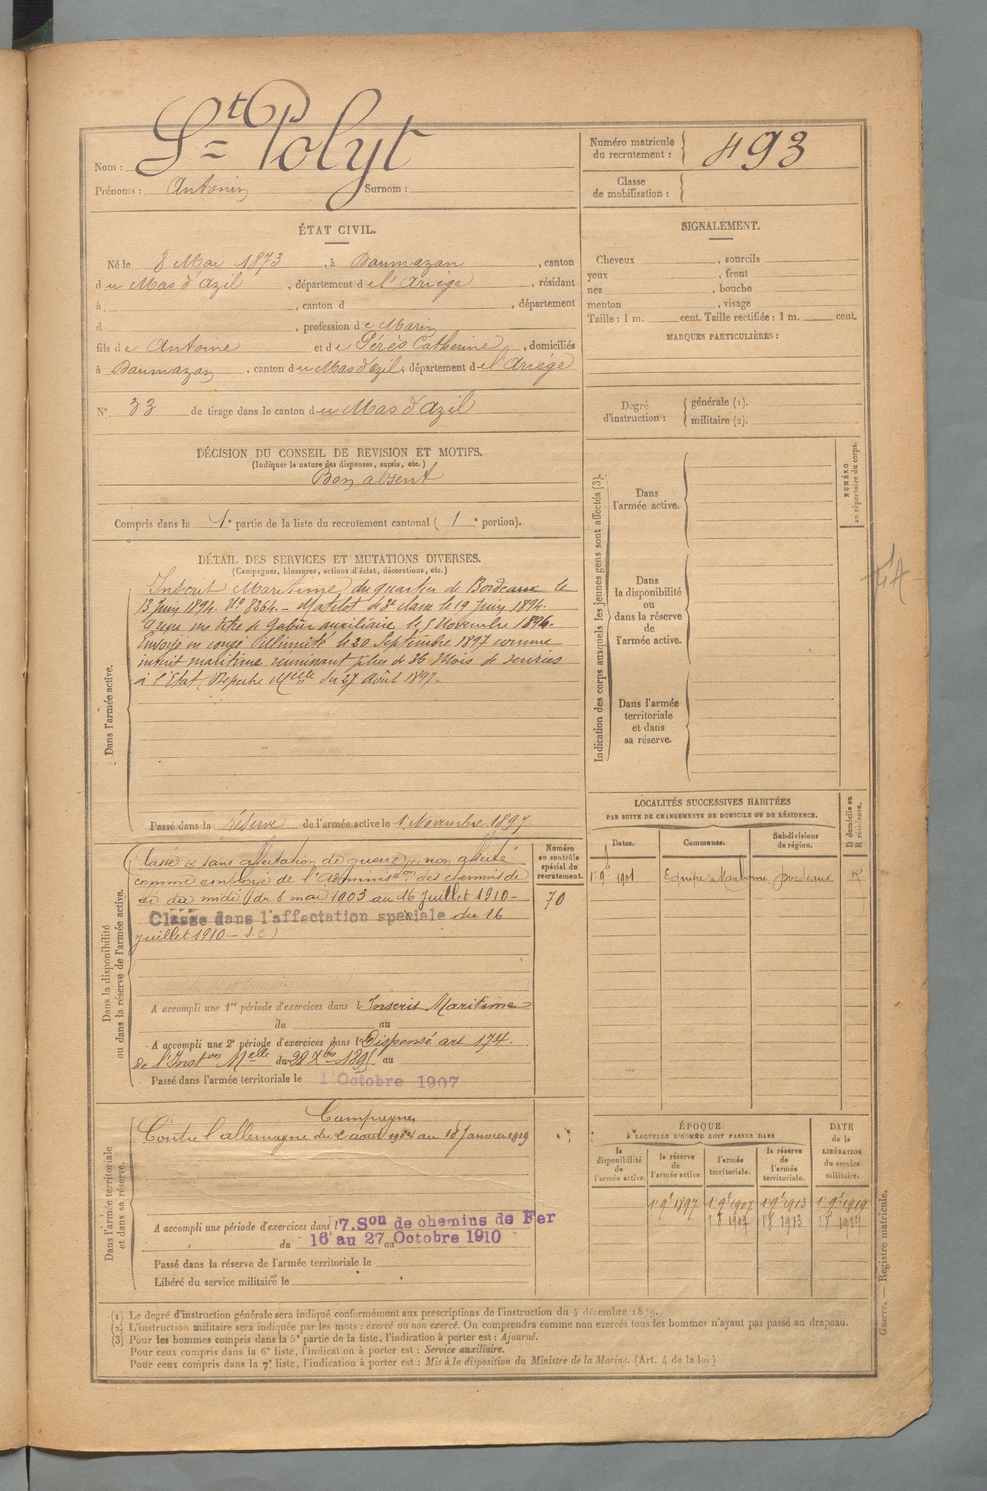 Nom : St Polyt
Prénoms : Antonin Surnom :
Numéro matricule du recrutement : 493
Classe de mobilisation :
ÉTAT CIVIL.
Né le 8 Mai 1873, à Daumazan, canton
du Mas d'Azil, département de l'Ariège, résidant
à , canton d , département
d , profession de Marin
fils de Antoine et de Pérès Catherine, domiciliés
à Daumazan, canton du Mas d'Azil, département de l'Ariège
N° 33 de tirage dans le canton du Mas d'Azil
SIGNALEMENT.
Cheveux , sourcils
yeux , front
nez , bouche
menton , visage
Taille : 1 m. cent. Taille rectifiée : 1 m. cent.
MARQUES PARTICULIÈRES :
Degré d'instruction : générale (1).
militaire (2).
DÉCISION DU CONSEIL DE REVISION ET MOTIFS.
(Indiquer la nature des dispenses, sursis, etc.)
Bon absent
Compris dans la 1e partie de la liste du recrutement cantonal (1e portion).
DÉTAIL DES SERVICES ET MUTATIONS DIVERSES.
(Campagnes, blessures, actions d'éclat, décorations, etc.)
Dans l'armée active.
Inscrit Maritime du quartier de Bordeaux le
13 Juin 1894. N° 8564. - Matelot de 3e classe le 19 Juin 1894.
auxiliaire le 5 Novembre 1896.
Envoyé en congé illimité le 20 Septembre 1897 comme
inscrit maritime réunissant plus de 36 Mois de services
à l'Etat. Dépêche Melle du 27 Août 1897.
Passé dans la réserve de l'armée active le 1 Novembre 1897
Indication des corps auxquels les jeunes gens sont affectés (3).
Dans l'armée active.
Dans la disponibilité ou dans la réserve de l'armée active.
Dans l'armée territoriale et dans sa réserve.
NUMÉRO au répertoire du corps.
Dans la disponibilité ou dans la réserve de l'armée active.
(Classé sans affectation de guerre, non affecté
comme employé de l'Administon des chemins de
fer du midi (du 8 mai 1903 au 16 Juillet 1910 -
Classé dans l'affectation spéciale du 16
Juillet 1910 -
Numéro au contrôle spécial du recrutement.
70
A accompli une 1re période d'exercices dans l'Inscrit Maritime
du au
A accompli une 2e période d'exercices dans l Dispensé art 174.
de l'Inston Melle du au
Passé dans l'armée territoriale le 1 Octobre 1907
LOCALITÉS SUCCESSIVES HABITÉES
PAR SUITE DE CHANGEMENTS DE DOMICILE OU DE RÉSIDENCE.
Dates. Communes. Subdivisions de région. D domicile ou R résidence.
1901 Equipe Narbonne Bordeaux R
Dans l'armée territoriale et dans sa réserve.
Campagnes
Contre l'allemagne du 2 août 1914 au 18 Janvier 1919
A accompli une période d'exercices dans l'7.Son de chemins de Fer
du 16 au 27 Octobre 1910
Passé dans la réserve de l'armée territoriale le
Libéré du service militaire le
ÉPOQUE
A LAQUELLE L'HOMME DOIT PASSER DANS
la disponibilité de l'armée active. la réserve de l'armée active. l'armée territoriale. la réserve de l'armée territoriale.
DATE de la LIBÉRATION du service militaire.
1 9 1897 1 9 1907 1 9 1913 1 9 1919
Guerre. — Registre matricule.
(1) Le degré d'instruction générale sera indiqué conformément aux prescriptions de l'instruction du 4 décembre 1889.
(2) L'instruction militaire sera indiquée par les mots : exercé ou non exercé. On comprendra comme non exercés tous les hommes n'ayant pas passé au drapeau.
(3) Pour les hommes compris dans la 5e partie de la liste, l'indication à porter est : Ajourné.
Pour ceux compris dans la 6e liste, l'indication à porter est : Service auxiliaire.
Pour ceux compris dans la 7e liste, l'indication à porter est : Mis à la disposition du Ministre de la Marine. (Art. 4 de la loi)